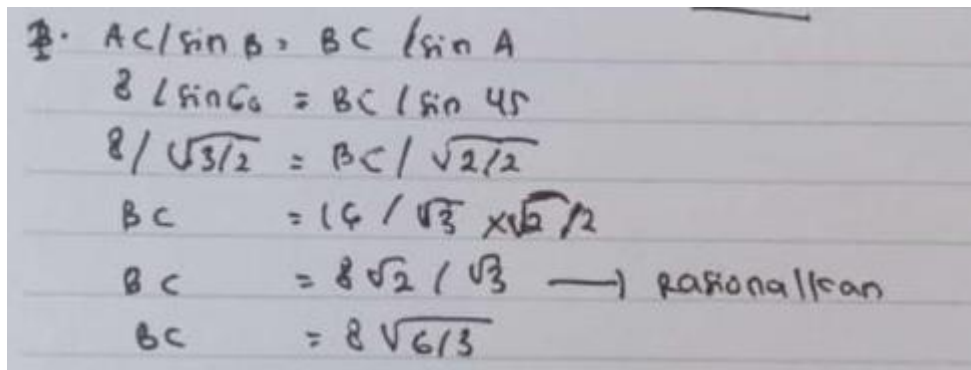 1. AC/sin B = BC /sin A
8 / sin 60 = BC / sin 45
8/ √3/2 = BC/ √2/2
BC = 16 / √3 x √2 /2
BC = 8 √2 / √3 → Rasionalkan
BC = 8 √6/3